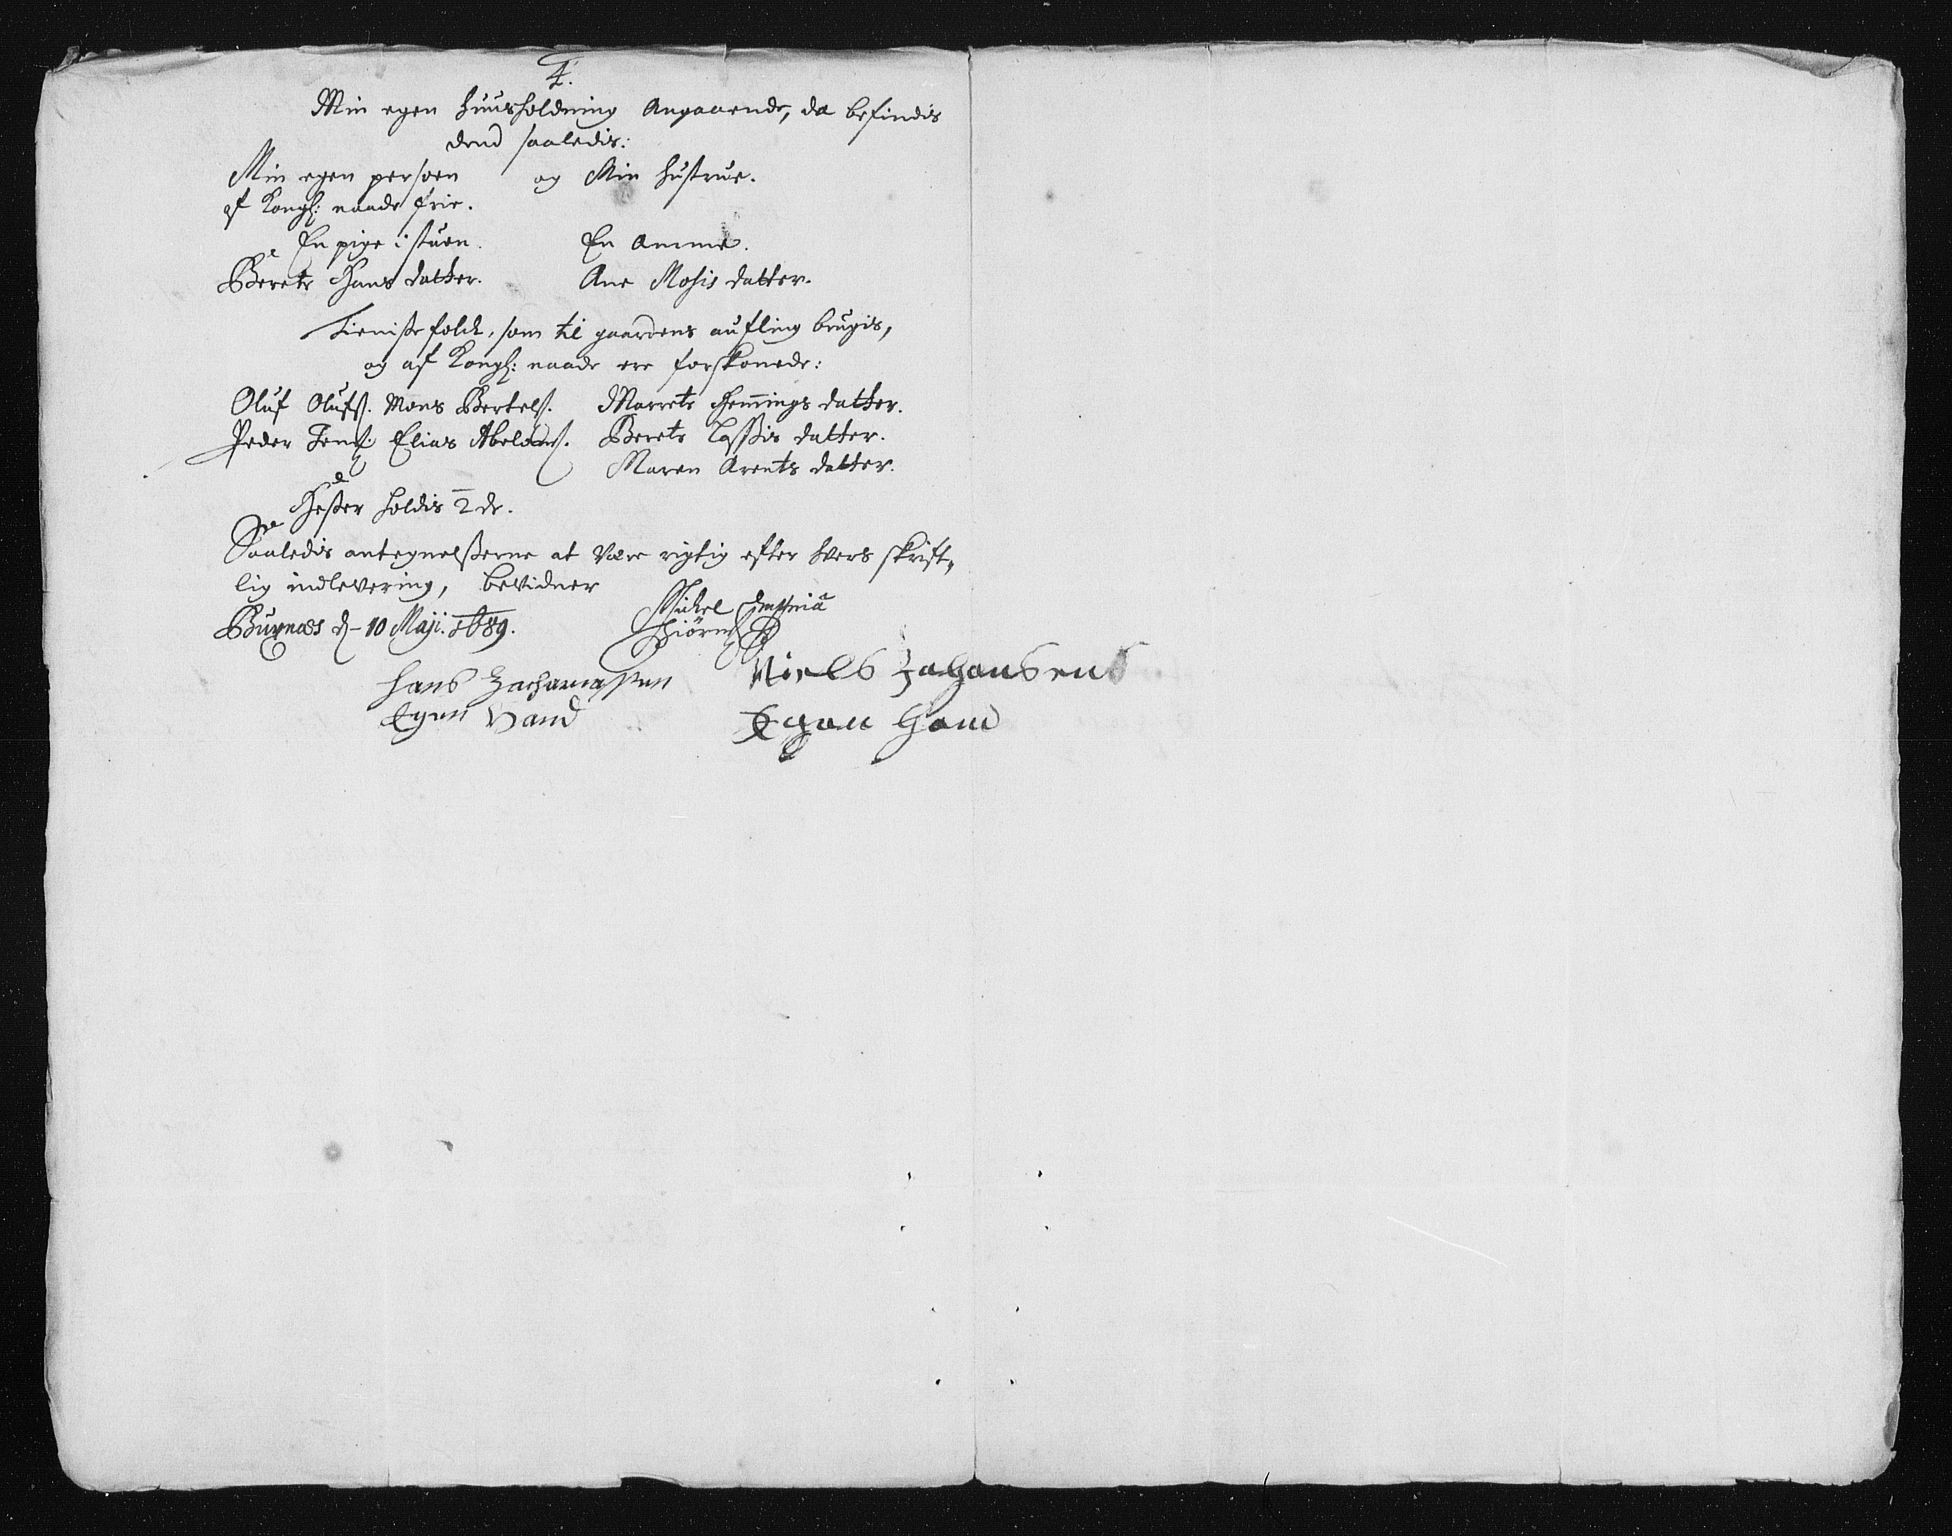 4.
Min egen huusholdning Angaaende, da befindis
dend saaledis:
Min egen persoen og Min hustrue.
af Kongl: naade frie.
En pige i stuen. En Amme.
Berete Hans datter. Ane Mosis datter.
Tieniste folck, som til gaardens aufling brugis,
og af Kongl: naade ere forskonede:
Oluf Olufs. Mons Bertels. Marrete Hemmings datter.
Peder Jens: Elias Abelss. Berete Lassis datter.
Maren Arents datter.
Hester holdis 2de.
Saaledis antegnelsserne at være rigtig efter hvers skrift-
lig indlevering, bevidner
Buxnæs d- 10 Maji. 1689. Mickel
Hiörns
Hans Zachariassen Niels Johansen
Egen Hand Egen Hand